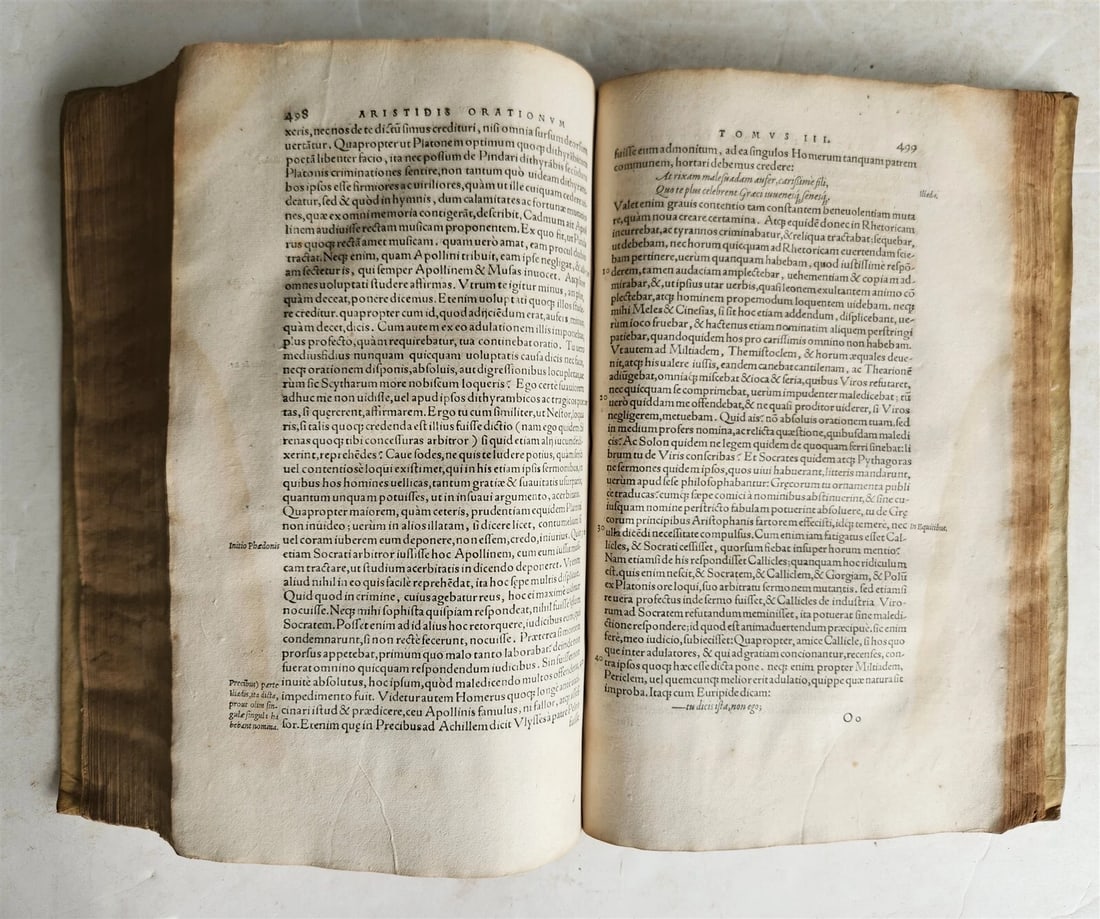 498 ARISTIDIS ORATIONVM
xeris, nec nos de te dictũ simus credituri, nisi omnia sursum deorsum
uertãtur. Quapropter ut Platonem optimum quoqꝫ dithyrãbicum
poetã libenter facio, ita nec possum de Pindari dithyrãbis
Platonis criminationes sentire, non tantum quòd uideam dithyrã
bos ipsos esse firmiores ac uiriliores, quàm ut ille cuiquam cedere ui
deatur, sed & quòd in hymnis, dum calamitates ac fortunæ
nes, quæ ex omni memoria contigerãt, describit, Cadmum ait Apol
linem audiuisse rectam musicam proponentem. Ex quo fit, ut
rus quoqꝫ rectã amet musicam. quam uerò amat, eam procul dubio
tractat. Neqꝫ enim, quam Apollini tribuit, eam ipse negligat,
am sectetur is, qui semper Apollinem & Musas inuocet.
omnes uoluptati studere affirmas. Vtrum te igitur minus, an plus,
quàm deceat, ponere dicemus. Etenim uoluptati quoqꝫ illos
re creditur. quapropter cum id, quod adijciẽdum erat, aufers minus,
quàm decet, dicis. Cum autem ex eo adulationem illis imponebas,
plus profecto, quàm requirebatur, tua continebat oratio. Tu uerò
mediusfidius nunquam quicquam uoluptatis causa dicis nec facis,
neqꝫ orationem disponis, absoluis, aut digressionibus locupletas,
rum sic Scytharum more nobiscum loqueris? Ego certè suauiorem
adhuc me non uidisse, uel apud ipsos dithyrambicos ac tragicos
tas, si quererent, affirmarem. Ergo tu cum similiter, ut Nestor, loqua
ris, si talis quoqꝫ credenda est illius fuisse dictio (nam ego quidem Si
renas quoqꝫ tibi concessuras arbitror) si quid etiam alij iucundè
xerint, reprehẽdes? Caue sodes, ne quis te ludere potius, quàm seriò
uel contentiosè loqui existimet, qui in his etiam ipsis sermonibus, in
quibus hos homines uellicas, tantum gratiæ & suauitatis usurpes,
quantum unquam potuisses, ut in insuaui argumento, acerbitatis.
Quapropter maiorem, quàm ceteris, prudentiam equidem Platoni
non inuideo; uerùm in alios illatam, si dicere licet, contumeliam si
uel coram iuberem eum deponere, non essem, credo, iniurius. Quin
Initio Phædonis
etiam Socrati arbitror iussisse hoc Apollinem, cum eum iussit musi
cam tractare, ut studium acerbitatis in dicendo deponeret. Vt enim
aliud nihil in eo quis facilè reprehẽdat, ita hoc sępe multis displicuit.
Quid quod in crimine, cuius agebatur reus, hoc ei maxime
nocuisse. Neqꝫ mihi sophista quispiam respondeat, nihil fuisse ipsum
Socratem. Posset enim ad id alius hoc retorquere, iudicibus eum qui
condemnarunt, si non rectè fecerunt, nocuisse. Præterea si mortem
prorsus appetebat, primum quo malo tanto laborabat? deinde non
fuerat omnino quicquam respondendum iudicibus. Sin fuisset non
Precibus) parte
Iliadis, ita dicta,
prout olim sin-
gulæ singula ha
bebant nomina.
inuitè absolutus, hoc ipsum, quòd maledicendo multos offenderet, ei
impedimento fuit. Videtur autem Homerus quoqꝫ longè ante uati
cinari istud & prædicere, ceu Apollinis famulus, ni fallor, atqꝫ asses
sor. Etenim quę in Precibus ad Achillem dicit Vlysses à patre Peleo
fuisse
TOMVS III. 499
fuisse eum admonitum, ad ea singulos Homerum tanquam patrem
communem, hortari debemus credere:
At rixam malesuadam aufer, carissime fili,
Quo te plus celebrent Graeci iuuenesqꝫ senesqꝫ. Iliad.
Valet enim grauis contentio tam constantem beneuolentiam muta
re, quàm noua creare certamina. Atqꝫ equidẽ donec in Rhetoricam
incurrebat, ac tyrannos criminabatur, & reliqua tractabat: sequebar,
ut debebam, nec horum quicquam ad Rhetoricam euertendam scie-
bam pertinere, uerum quanquam habebam, quod iustissimè respõ-
10 derem, tamen audaciam amplectebar, uehementiam & copiam ad-
mirabar, &, ut ipsius utar uerbis, quasi leonem exultantem animo cõ
plectebar, atqꝫ hominem propemodum loquentem uidebam. necqꝫ
mihi Meles & Cinesias, si sit hoc etiam addendum, displicebant, ue-
rùm ioco fruebar, & hactenus etiam nominatim aliquem perstringi
patiebar, quandoquidem hos pro carissimis omnino non habebam.
Vt autem ad Miltiadem, Themistoclem, & horum æquales deue-
nit, atqꝫ his ualere iussis, eandem canebat cantilenam, ac Thearionẽ
adiũgebat, omniaqꝫ miscebat & ioca & seria, quibus Viros refutaret,
nec quicquam se comprimebat, uerum impudenter maledicebat; tũ
20 uerò quiddam me offendebat, & ne quasi proditor uiderer, si Viros
negligerem, metuebam. Quid ais? nõ absoluis orationem tuam, sed
in medium profers nomina, ac relicta quæstione, quibusdam maledi
cis? Ac Solon quidem ne legem quidem de quoquam ferri sinebat: li
brum tu de Viris conscribas? Et Socrates quidem atqꝫ Pythagoras
ne sermones quidem ipsos, quos uiui habuerant, litteris mandarunt,
uerùm apud sese philosophabantur: Gręcorum tu ornamenta publi
ce traducas? cumqꝫ sæpe comici à nominibus abstinuerint, & sine cu-
iusquam nomine perstricto fabulam potuerint absoluere, tu de Grę
corum principibus Aristophanis sartorem effecisti, idqꝫ temerè, nec In Equitibus.
30 ulla dicẽdi necessitate compulsus. Cum enim iam fatigatus esset Cal-
licles, & Socrati cessisset, quorsum fiebat insuper horum mentio?
Nam etiamsi de his respondisset Callicles; quanquam hoc ridiculum
est. quis enim nescit, & Socratem, & Calliclem, & Gorgiam, & Polũ
ex Platonis ore loqui, suo arbitratu sermonem mutantis. sed etiamsi
reuera profectus inde sermo fuisset, & Callicles de industria Viro-
rum ad Socratem refutandum meminisset, ita potuerat sine maledi-
ctione respondere; id quod est animaduertendum præcipuè. sic enim
ferè, meo iudicio, subiecisset: Quapropter, amice Callicle, si hos quo
que inter adulatores, & qui ad gratiam concionantur, recenses, con-
40 tra ipsos quoqꝫ hæc esse dicta pone. neqꝫ enim propter Miltiadem,
Periclem, uel quemcunqꝫ melior erit adulatio, quippe quæ natura sit
improba. Itaqꝫ cum Euripide dicam:
—tu dicis ista, non ego;
Oo